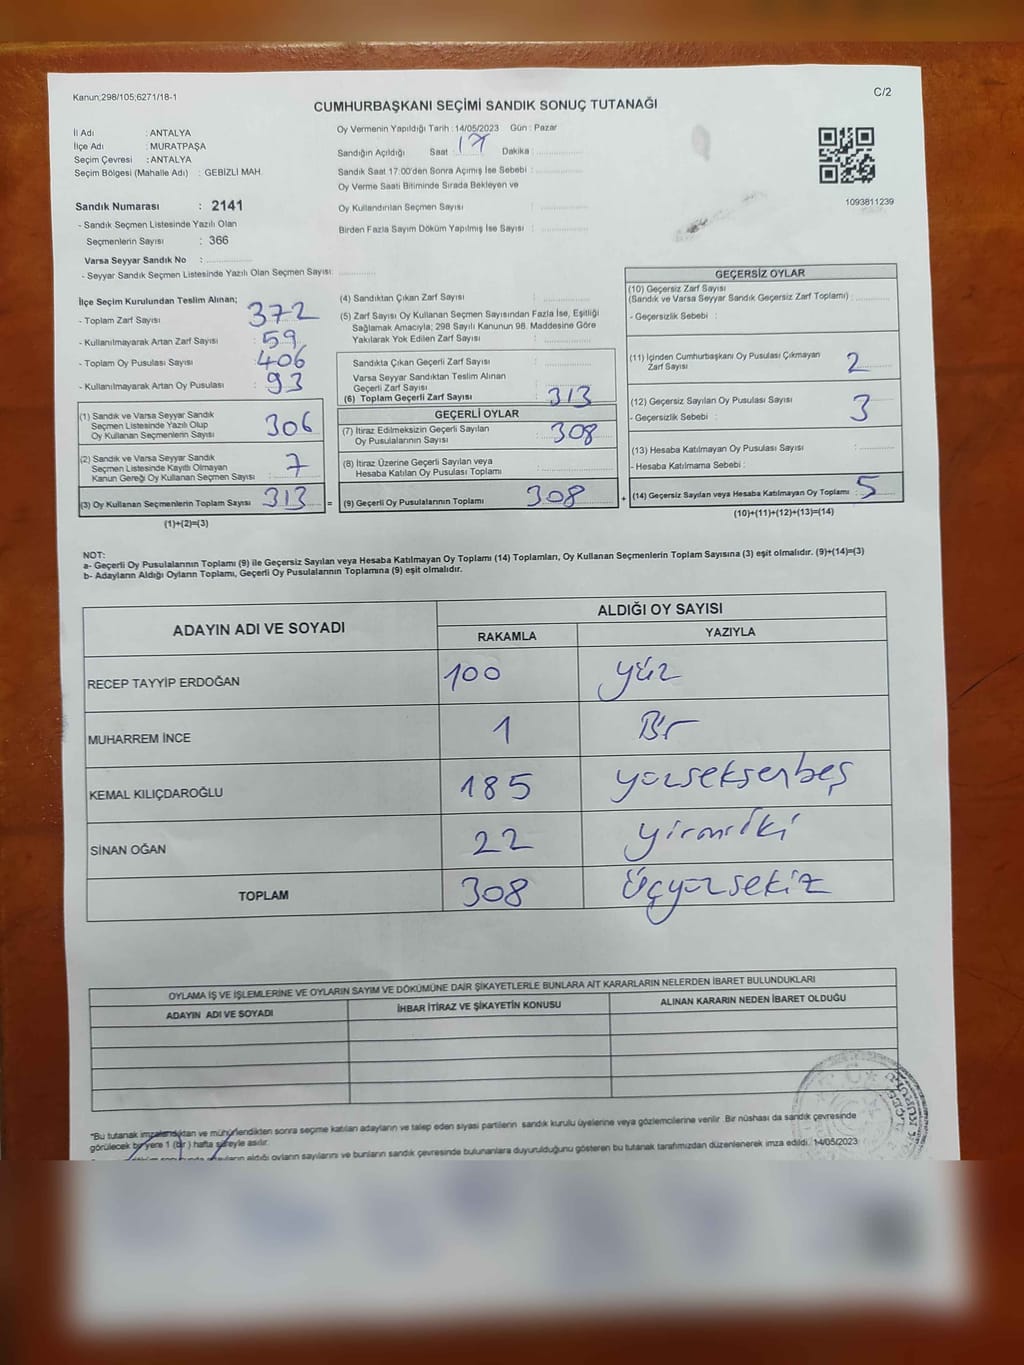 Kanun;298/105;6271/18-1
C/2
CUMHURBAŞKANI SEÇİMİ SANDIK SONUÇ TUTANAĞI
İl Adı : ANTALYA
İlçe Adı : MURATPAŞA
Seçim Çevresi : ANTALYA
Seçim Bölgesi (Mahalle Adı) : GEBİZLİ MAH.
Sandık Numarası : 2141
- Sandık Seçmen Listesinde Yazılı Olan
Seçmenlerin Sayısı : 366
Varsa Seyyar Sandık No :
- Seyyar Sandık Seçmen Listesinde Yazılı Olan Seçmen Sayısı:
Oy Vermenin Yapıldığı Tarih : 14/05/2023 Gün : Pazar
Sandığın Açıldığı Saat : 17 Dakika :
Sandık Saat 17.00'den Sonra Açımış İse Sebebi :
Oy Verme Saati Bitiminde Sırada Bekleyen ve
Oy Kullandırılan Seçmen Sayısı :
Birden Fazla Sayım Döküm Yapılmış İse Sayısı :
1093811239
İlçe Seçim Kurulundan Teslim Alınan;
- Toplam Zarf Sayısı : 372
- Kullanılmayarak Artan Zarf Sayısı : 59
- Toplam Oy Pusulası Sayısı : 406
- Kullanılmayarak Artan Oy Pusulası : 93
(1) Sandık ve Varsa Seyyar Sandık
Seçmen Listesinde Yazılı Olup
Oy Kullanan Seçmenlerin Sayısı : 306
(2) Sandık ve Varsa Seyyar Sandık
Seçmen Listesinde Kayıtlı Olmayan
Kanun Gereği Oy Kullanan Seçmen Sayısı : 7
(3) Oy Kullanan Seçmenlerin Toplam Sayısı : 313 =
(1)+(2)=(3)
(4) Sandıktan Çıkan Zarf Sayısı :
(5) Zarf Sayısı Oy Kullanan Seçmen Sayısından Fazla İse, Eşitliği
Sağlamak Amacıyla; 298 Sayılı Kanunun 98. Maddesine Göre
Yakılarak Yok Edilen Zarf Sayısı :
Sandıkta Çıkan Geçerli Zarf Sayısı :
Varsa Seyyar Sandıktan Teslim Alınan
Geçerli Zarf Sayısı :
(6) Toplam Geçerli Zarf Sayısı : 313
GEÇERLİ OYLAR
(7) İtiraz Edilmeksizin Geçerli Sayılan
Oy Pusulalarının Sayısı : 308
(8) İtiraz Üzerine Geçerli Sayılan veya
Hesaba Katılan Oy Pusulası Toplamı :
(9) Geçerli Oy Pusulalarının Toplamı : 308 +
GEÇERSİZ OYLAR
(10) Geçersiz Zarf Sayısı
(Sandık ve Varsa Seyyar Sandık Geçersiz Zarf Toplamı) :
- Geçersizlik Sebebi :
(11) İçinden Cumhurbaşkanı Oy Pusulası Çıkmayan
Zarf Sayısı : 2
(12) Geçersiz Sayılan Oy Pusulası Sayısı : 3
- Geçersizlik Sebebi :
(13) Hesaba Katılmayan Oy Pusulası Sayısı :
- Hesaba Katılmama Sebebi :
(14) Geçersiz Sayılan veya Hesaba Katılmayan Oy Toplamı : 5
(10)+(11)+(12)+(13)=(14)
NOT:
a- Geçerli Oy Pusulalarının Toplamı (9) ile Geçersiz Sayılan veya Hesaba Katılmayan Oy Toplamı (14) Toplamları, Oy Kullanan Seçmenlerin Toplam Sayısına (3) eşit olmalıdır. (9)+(14)=(3)
b- Adayların Aldığı Oyların Toplamı, Geçerli Oy Pusulalarının Toplamına (9) eşit olmalıdır.
ADAYIN ADI VE SOYADI
ALDIĞI OY SAYISI
RAKAMLA YAZIYLA
RECEP TAYYİP ERDOĞAN 100 yüz
MUHARREM İNCE 1 Bir
KEMAL KILIÇDAROĞLU 185 yüzseksenbeş
SİNAN OĞAN 22 yirmiiki
TOPLAM 308 Üçyüzsekiz
OYLAMA İŞ VE İŞLEMLERİNE VE OYLARIN SAYIM VE DÖKÜMÜNE DAİR ŞİKAYETLERLE BUNLARA AİT KARARLARIN NELERDEN İBARET BULUNDUKLARI
ADAYIN ADI VE SOYADI İHBAR İTİRAZ VE ŞİKAYETİN KONUSU ALINAN KARARIN NEDEN İBARET OLDUĞU
*Bu tutanak imzalandıktan ve mühürlendikten sonra seçime katılan adayların ve talep eden siyasi partilerin sandık kurulu üyelerine veya gözlemcilerine verilir. Bir nüshası da sandık çevresinde
görülecek bir yere 1 (bir) hafta süreyle asılır.
aldığı oyların sayılarını ve bunların sandık çevresinde bulunanlara duyurulduğunu gösteren bu tutanak tarafımızdan düzenlenerek imza edildi. 14/05/2023